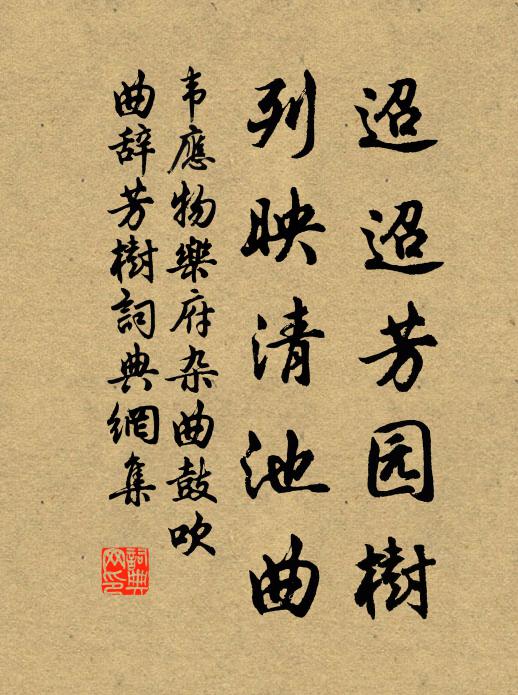 迢迢芳园樹
列映清池曲
韦應物樂府杂曲鼓吹
曲辞芳樹詞典網集
詞典网印